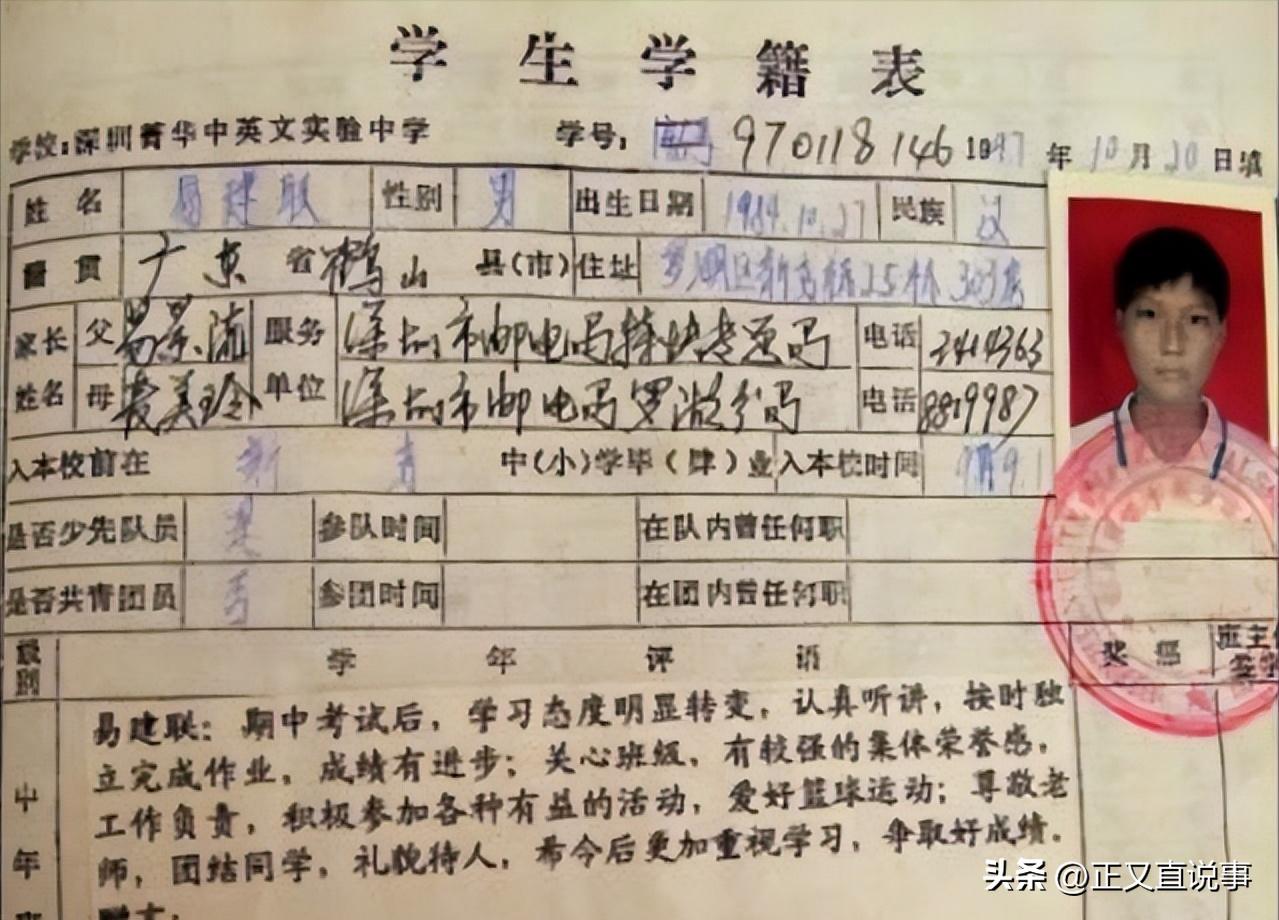 学生学籍表
学校：深圳菁华中英文实验中学 学号： 970118146 1997年10月20日填
姓名 易建联 性别 男 出生日期 1984.10.27 民族 汉
籍贯 广东省鹤山县(市) 住址 罗湖区新秀村25栋303房
家长姓名 父 易景流 服务单位 深圳市邮电局特快专递局 电话 2414363
母 麦美玲 深圳市邮电局罗湖分局 电话 8819987
入本校前在 新秀 中(小)学毕(肄)业 入本校时间 9.1
是否少先队员 是 参队时间 在队内曾任何职
是否共青团员 否 参团时间 在团内曾任何职
级别 学年评语 奖惩 班主任
易建联：期中考试后，学习态度明显转变，认真听讲，按时独
立完成作业，成绩有进步；关心班级，有较强的集体荣誉感，
工作负责，积极参加各种有益的活动，爱好篮球运动；尊敬老
师，团结同学，礼貌待人，希今后更加重视学习，争取好成绩。
中
年
头条 @正又直说事